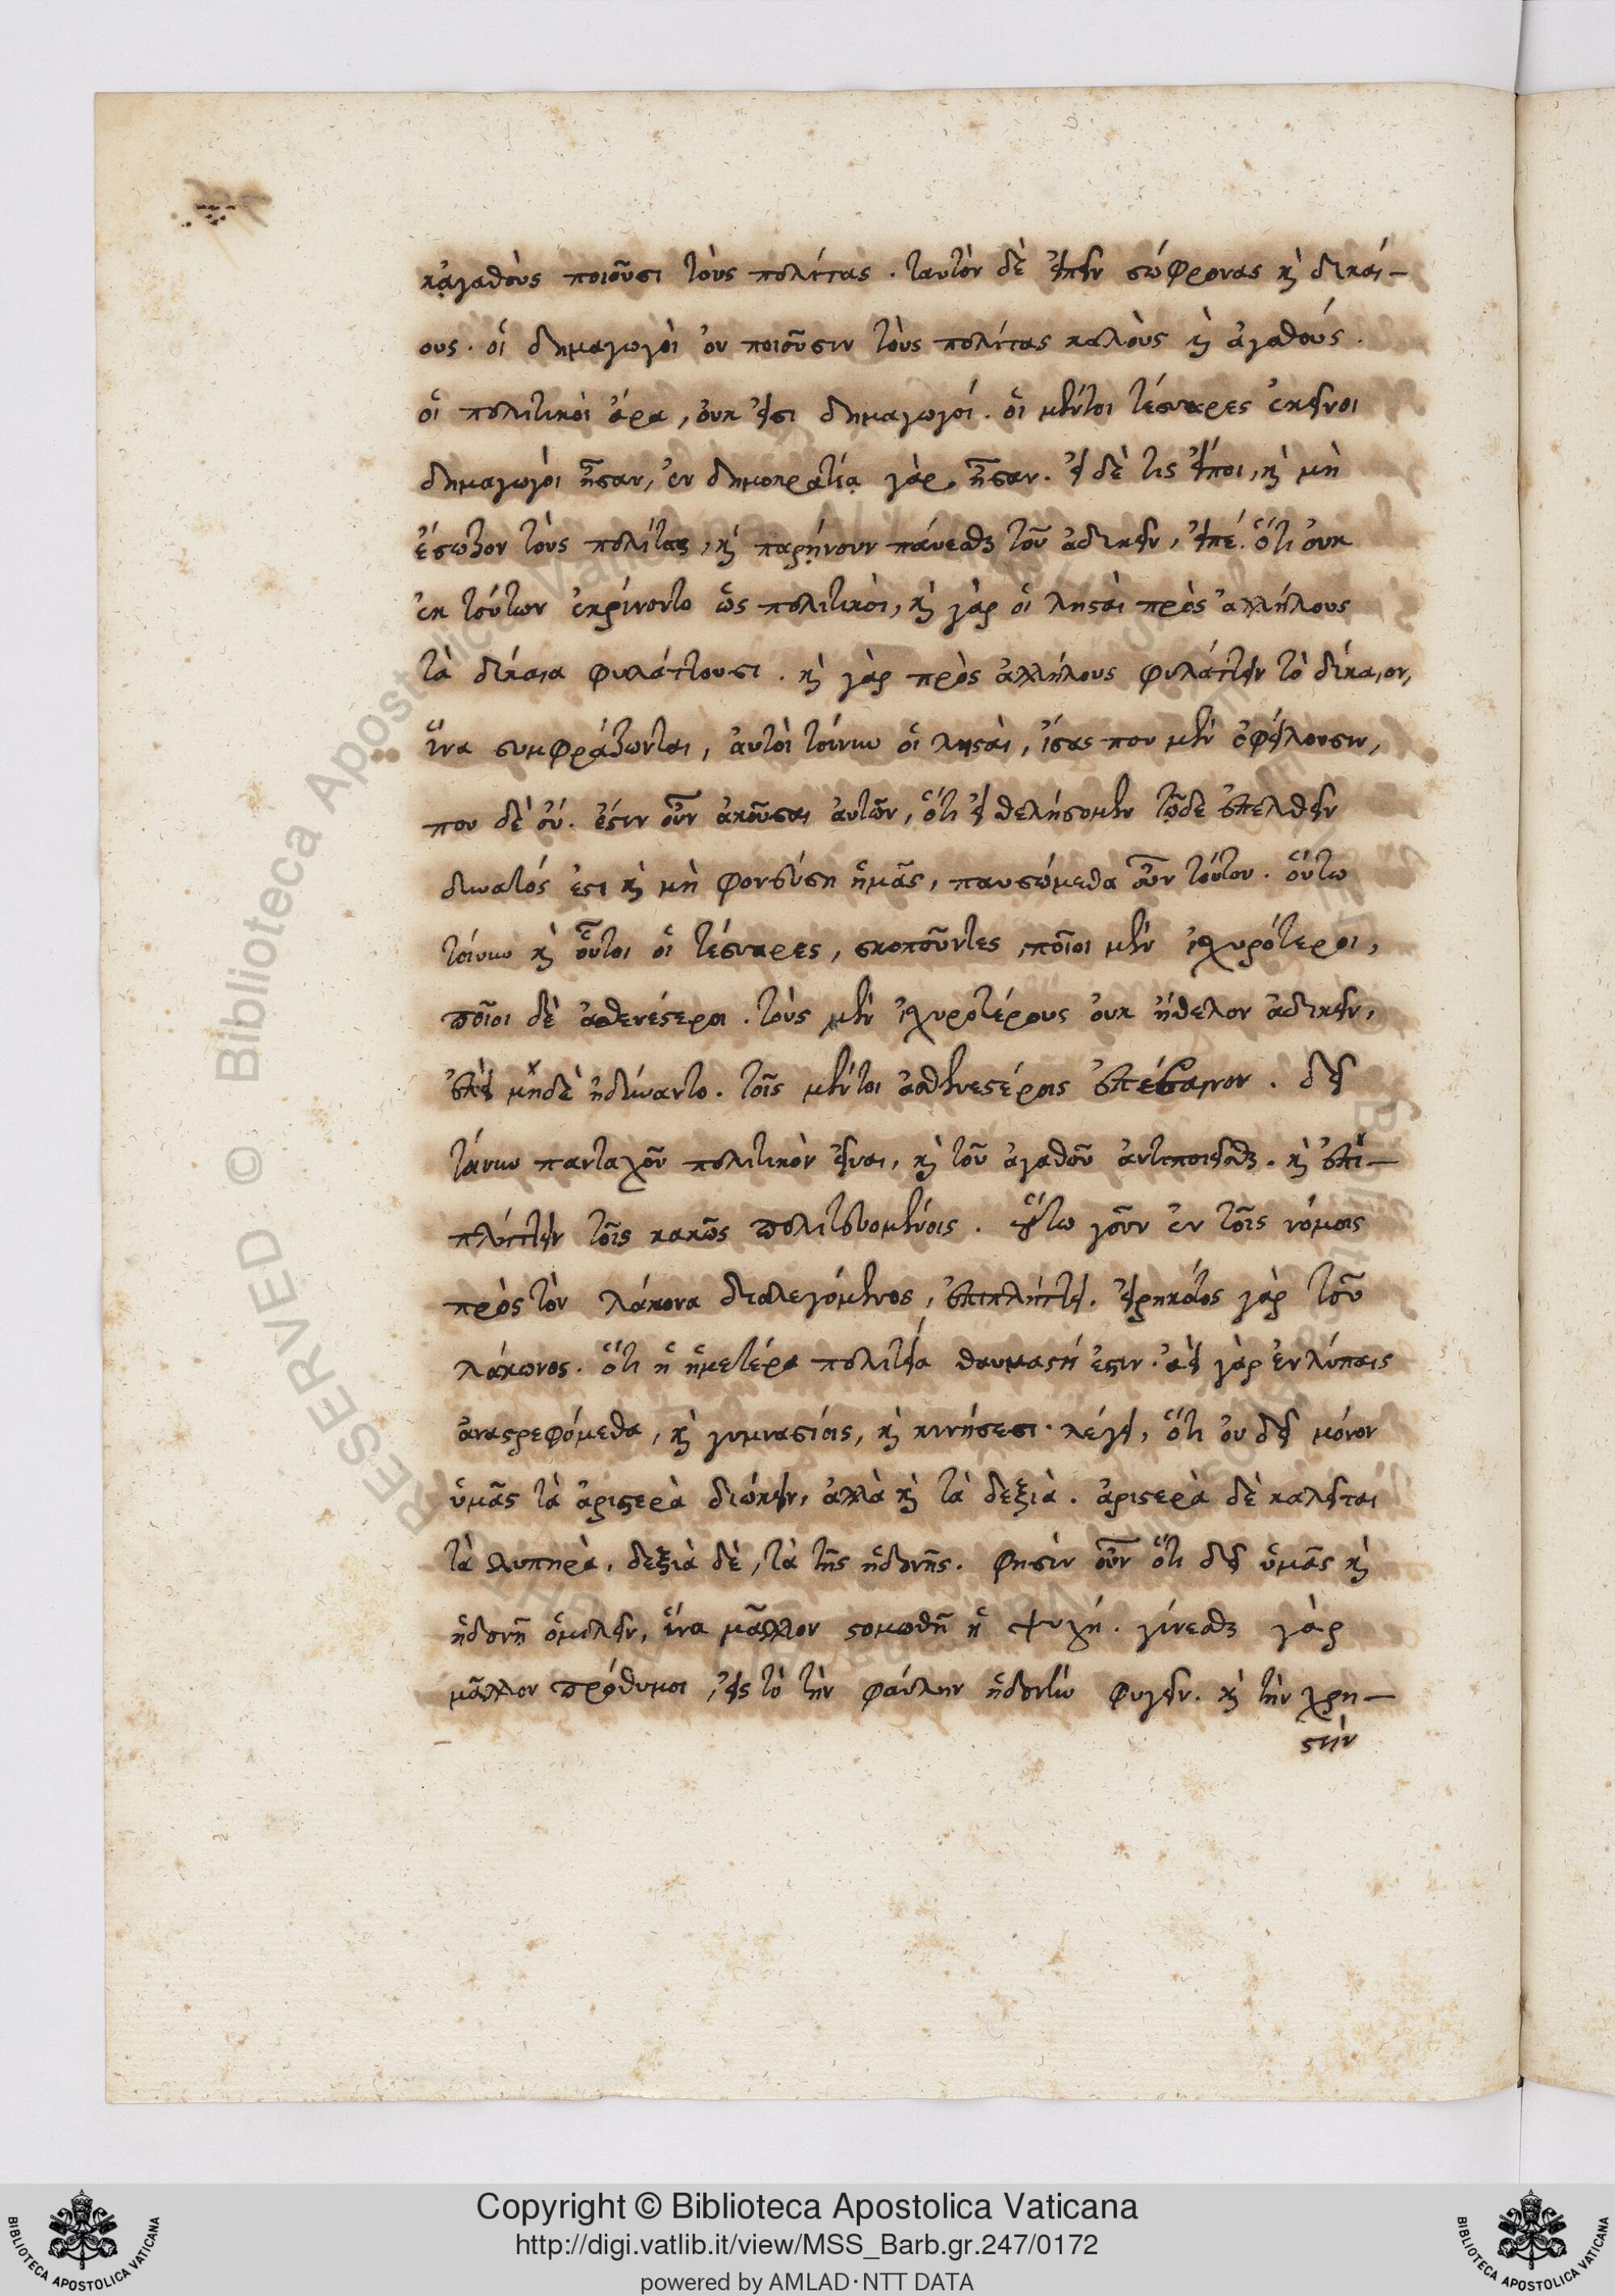 κἀγαθοὺς ποιοῦσι τοὺς πολίτας. ταυτὸν δὲ εἰπεῖν σώφρονας κὴ δικαί-
ους. οἱ δημαγωγοὶ οὐ ποιοῦσιν τοὺς πολίτας καλοὺς κὴ ἀγαθούς.
οἱ πολιτικοὶ ἄρα, οὐκ εἰσι δημαγωγοί. οἱ μέντοι τέσσαρες ἐκεῖνοι
δημαγωγοὶ ἦσαν, ἐν δημοκρατίᾳ γὰρ ἦσαν. εἰ δέ τις εἴποι, κὴ μὴν
ἔσωζον τοὺς πολίτας, κὴ παρῄνουν παύεσθαι τοῦ ἀδικεῖν, εἰπέ. ὅτι οὐκ
ἐκ τούτων ἐκρίνοντο ὡς πολιτικοὶ, κὴ γὰρ οἱ λησταὶ πρὸς ἀλλήλους
τὰ δίκαια φυλάττουσι. κὴ γὰρ πρὸς ἀλλήλους φυλάττειν τὸ δίκαιον,
ἵνα συμφράζωνται, αὐτοὶ τοίνυν οἱ λησταὶ, ἴσας που μὲν ὀφείλουσιν,
που δὲ οὔ. ἔστιν οὖν ἀκοῦσαι αὐτῶν, ὅτι εἰ θελήσομεν τῷδε ἐπελθεῖν
δυνατός ἐστι κὴ μὴ φονεύσῃ ἡμᾶς, παυσώμεθα οὖν τούτου. οὕτω
τοίνυν κὴ οὗτοι οἱ τέσσαρες, σκοποῦντες ποῖοι μὲν ἰσχυρότεροι,
ποῖοι δὲ ἀσθενέστεροι. τοὺς μὲν ἰσχυροτέρους οὐκ ἤθελον ἀδικεῖν,
ἐπεὶ μηδὲ ἠδύναντο. τοῖς μέντοι ἀσθενεστέροις ἐπέβαινον. δεῖ
τοίνυν πανταχοῦ πολιτικὸν εἶναι, κὴ τοῦ ἀγαθοῦ ἀντιποιεῖσθαι. κὴ ἐπι-
πλήττειν τοῖς κακῶς πολιτευομένοις. οὕτω γοῦν ἐν τοῖς νόμοις
πρὸς τὸν λάκονα διαλεγόμενος, ἐπιπλήττει. εἰρηκότος γὰρ τοῦ
λάκωνος. ὅτι ἡ ἡμετέρα πολιτεία θαυμαστή ἐστιν. ἀεὶ γὰρ ἐν λύπαις
ἀναστρεφόμεθα, κὴ γυμνασίοις, κὴ κινήσεσι. λέγει, ὅτι οὐ δεῖ μόνον
ὑμᾶς τὰ ἀριστερὰ διώκειν, ἀλλὰ κὴ τὰ δεξιὰ. ἀριστερὰ δὲ καλεῖται
τὰ λυπηρὰ, δεξιὰ δὲ, τὰ τῆς ἡδονῆς. φησὶν οὖν ὅτι δεῖ ὑμᾶς κὴ
ἡδονῇ ὁμιλεῖν, ἵνα μᾶλλον στομωθῇ ἡ ψυχή. γίνεσθαι γὰρ
μᾶλλον πρόθυμοι, εἰς τὸ τὴν φαύλην ἡδονὴν φυγεῖν. κὴ τὴν χρη-
στὴν